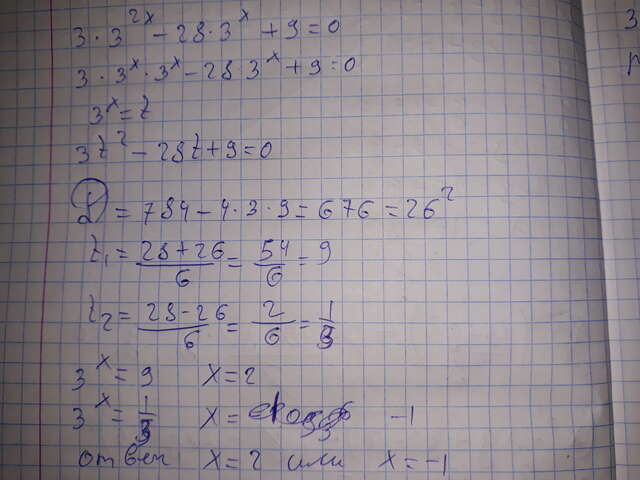 3·3^2x − 28·3^x + 9=0
3·3^x·3^x − 28 3^x + 9=0
3^x=t
3t² − 28t + 9=0
D = 784 − 4·3·9 = 676 = 26²
t₁ = (28+26)/6 = 54/6 = 9
t₂ = (28−26)/6 = 2/6 = 1/3
3^x = 9 x=2
3^x = 1/3 x= −1
ответ x=2 или x=−1